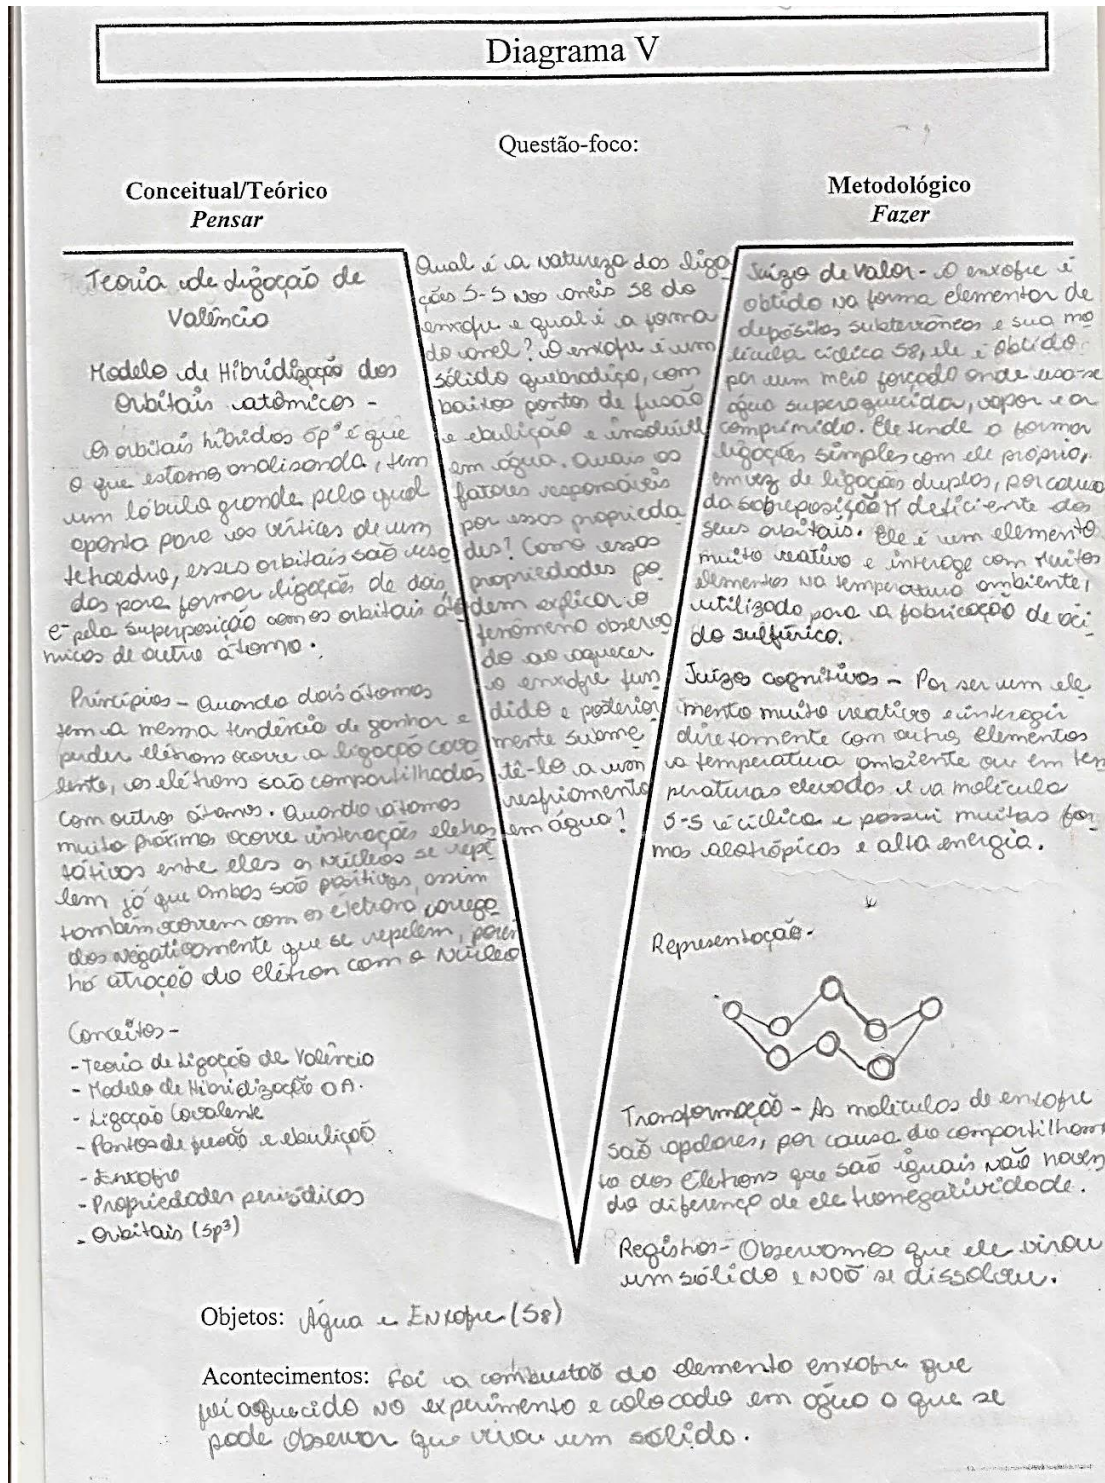 Diagrama V
Questão-foco:
Conceitual/Teórico
Pensar
Teoria de Ligação de
Valência
Modelo de Hibridização dos
Orbitais atômicos -
Os orbitais híbridos sp³ é que
o que estamos analisando, tem
um lóbulo grande pelo qual
aponta para os vértices de um
tetraedro, esses orbitais são usa
dos para formar ligação de dois
e- pela superposição com os orbitais atô
micos de outro átomo.
Princípios - Quando dois átomos
tem a mesma tendência de ganhar e
perder elétrons ocorre a ligação cova
lente, os elétrons são compartilhados
com outros átomos. Quando átomos
muito próximo ocorre interações eletros
tátivos entre eles os núcleos se repe
lem já que ambos são positivos, assim
também ocorrem com os elétrons carrega
dos negativamente que se repelem, porém
há atração do elétron com o núcleo
Conceitos -
- Teoria de Ligação de Valência
- Modelo de Hibridização O A.
- Ligação Covalente
- Pontos de fusão e ebulição
- Enxofre
- Propriedades periódicas
- Orbitais (sp³)
Qual é a natureza dos liga
ções S-S nos aneis S8 do
enxofre e qual é a forma
do anel? O enxofre é um
sólido quebradiço, com
baixos pontos de fusão
e ebulição e insolúvel
em água. Quais os
fatores responsáveis
por essas proprieda
des? Como essas
propriedades po
dem explicar o
fenômeno observa
do ao aquecer
o enxofre fun
dido e posterior
mente subme
tê-lo a um
resfriamento
em água?
Metodológico
Fazer
Juízo de Valor - O enxofre é
obtido na forma elementar de
depósitos subterrâneos e sua mo
lécula cíclica S8, ele é obtido
por um meio forçado onde usa-se
água superaquecida, vapor e ar
comprimido. Ele tende a formar
ligações simples com ele próprio,
em vez de ligações duplas, por causa
da sobreposição π deficiente dos
seus orbitais. Ele é um elemento
muito reativo e interage com muitos
elementos na temperatura ambiente,
utilizado para a fabricação de áci
do sulfúrico.
Juízos cognitivos - Por ser um ele
mento muito reativo e interagir
diretamente com outros elementos
a temperatura ambiente ou em tem
peraturas elevadas e a molécula
S-S é cíclica e possui muitas for
mas alotrópicas e alta energia.
Representação -
Transformação - As moléculas de enxofre
são apolares, por causa do compartilhamen
to dos Elétrons que são iguais não haven
do diferença de eletronegatividade.
Registros - Observamos que ele virou
um sólido e não se dissolveu.
Objetos: Água e Enxofre (S8)
Acontecimentos: Foi a combustão do elemento enxofre que
foi aquecido no experimento e colocado em água o que se
pode observar que virou um sólido.